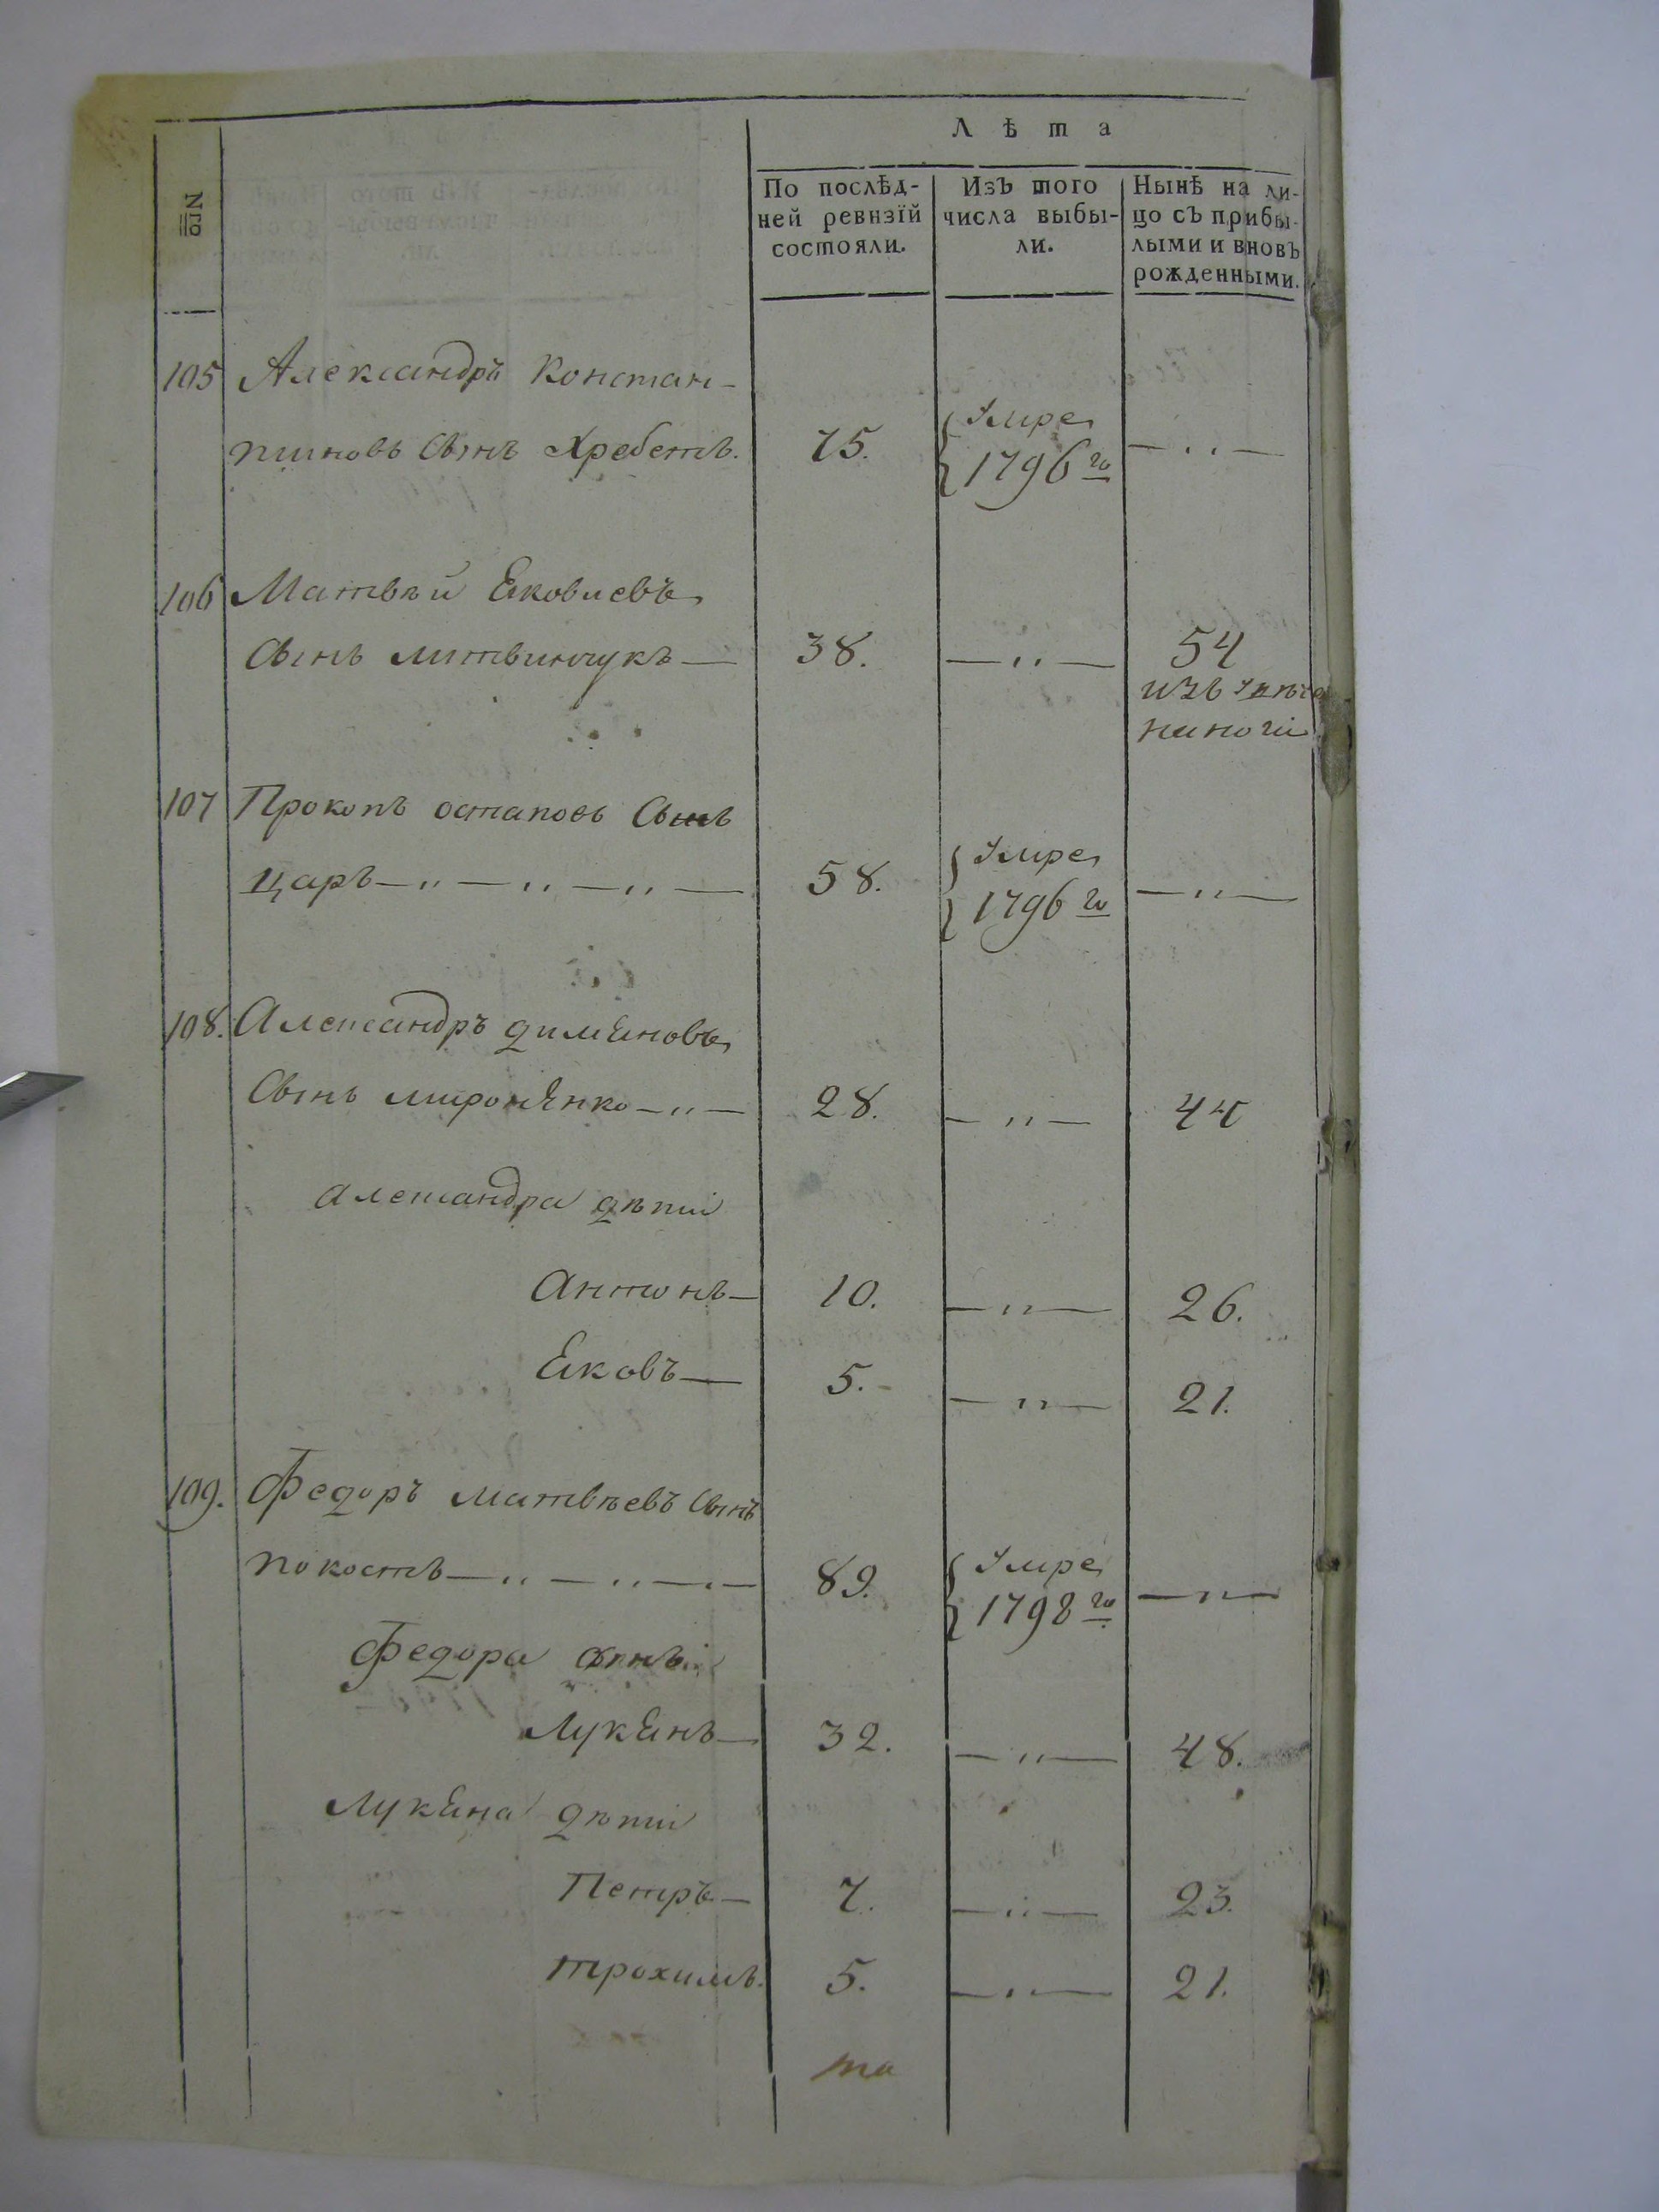 Лѣта
Nro
По послѣд-
ней ревизїй
состояли.
Изъ того
числа выбы-
ли.
Нынѣ на ли-
цо съ прибы-
лыми и вновь
рожденными.
105 Александръ Констан-
тиновъ Сынъ Хребетъ. 75. Умре 1796го — „ —
106 Матвѣй Еяковлевъ
Сынъ литвинчукъ — 38. — „ — 54
изъ
ниноги
107 Прокопъ остаповъ Сынъ
царъ — „ — „ — „ — 58. Умре 1796го — „ —
108. Александръ димЕяновъ
Сынъ миронЯнко — „ — 28. — „ — 44
александра дѣти
антонъ — 10. — „ — 26.
Еяковъ — 5. — „ — 21.
109. Федоръ матвѣевъ Сынъ
покостъ — „ — „ — „ — 89. Умре 1798го — „ —
Федора Сынъ
ЛукЕянъ — 32. — „ — 48.
ЛукЕяна дѣти
Петръ — 7. — „ — 23.
трохимъ. 5. — „ — 21.
та